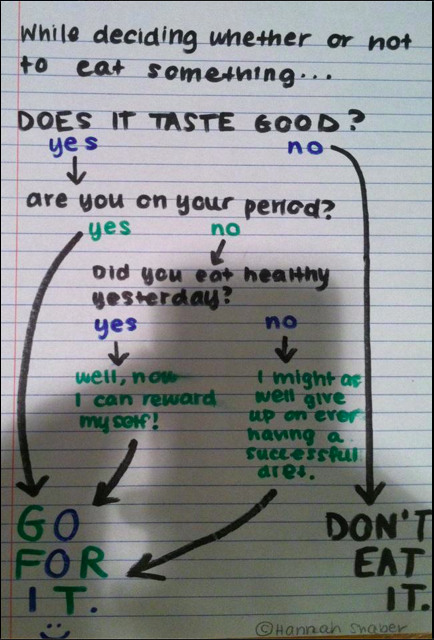 While deciding whether or not
to eat something...
DOES IT TASTE GOOD?
yes no
are you on your period?
yes no
Did you eat healthy
yesterday?
yes no
well, now
I can reward
myself!
I might as
well give
up on ever
having a
successful
diet.
GO
FOR
IT.
DON'T
EAT
IT.
©Hannah Shaber